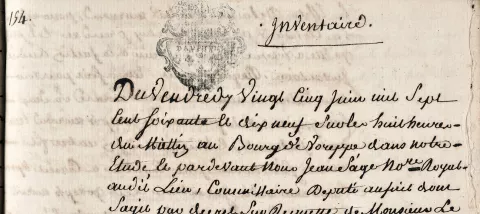 194.
Inventaire.
Du Vendredy Vingt Cinq Juin mil Sept
Cent Soixante et dix neuf Sur les huit heures
du Mattin au Bourg de Voreppe dans notre
Etude et pardevant Nous Jean Sage No.re Royal
audit Lieu, Commissaire Deputé au fait dont
S'agit par decret Sur Requette de Monsieur Le